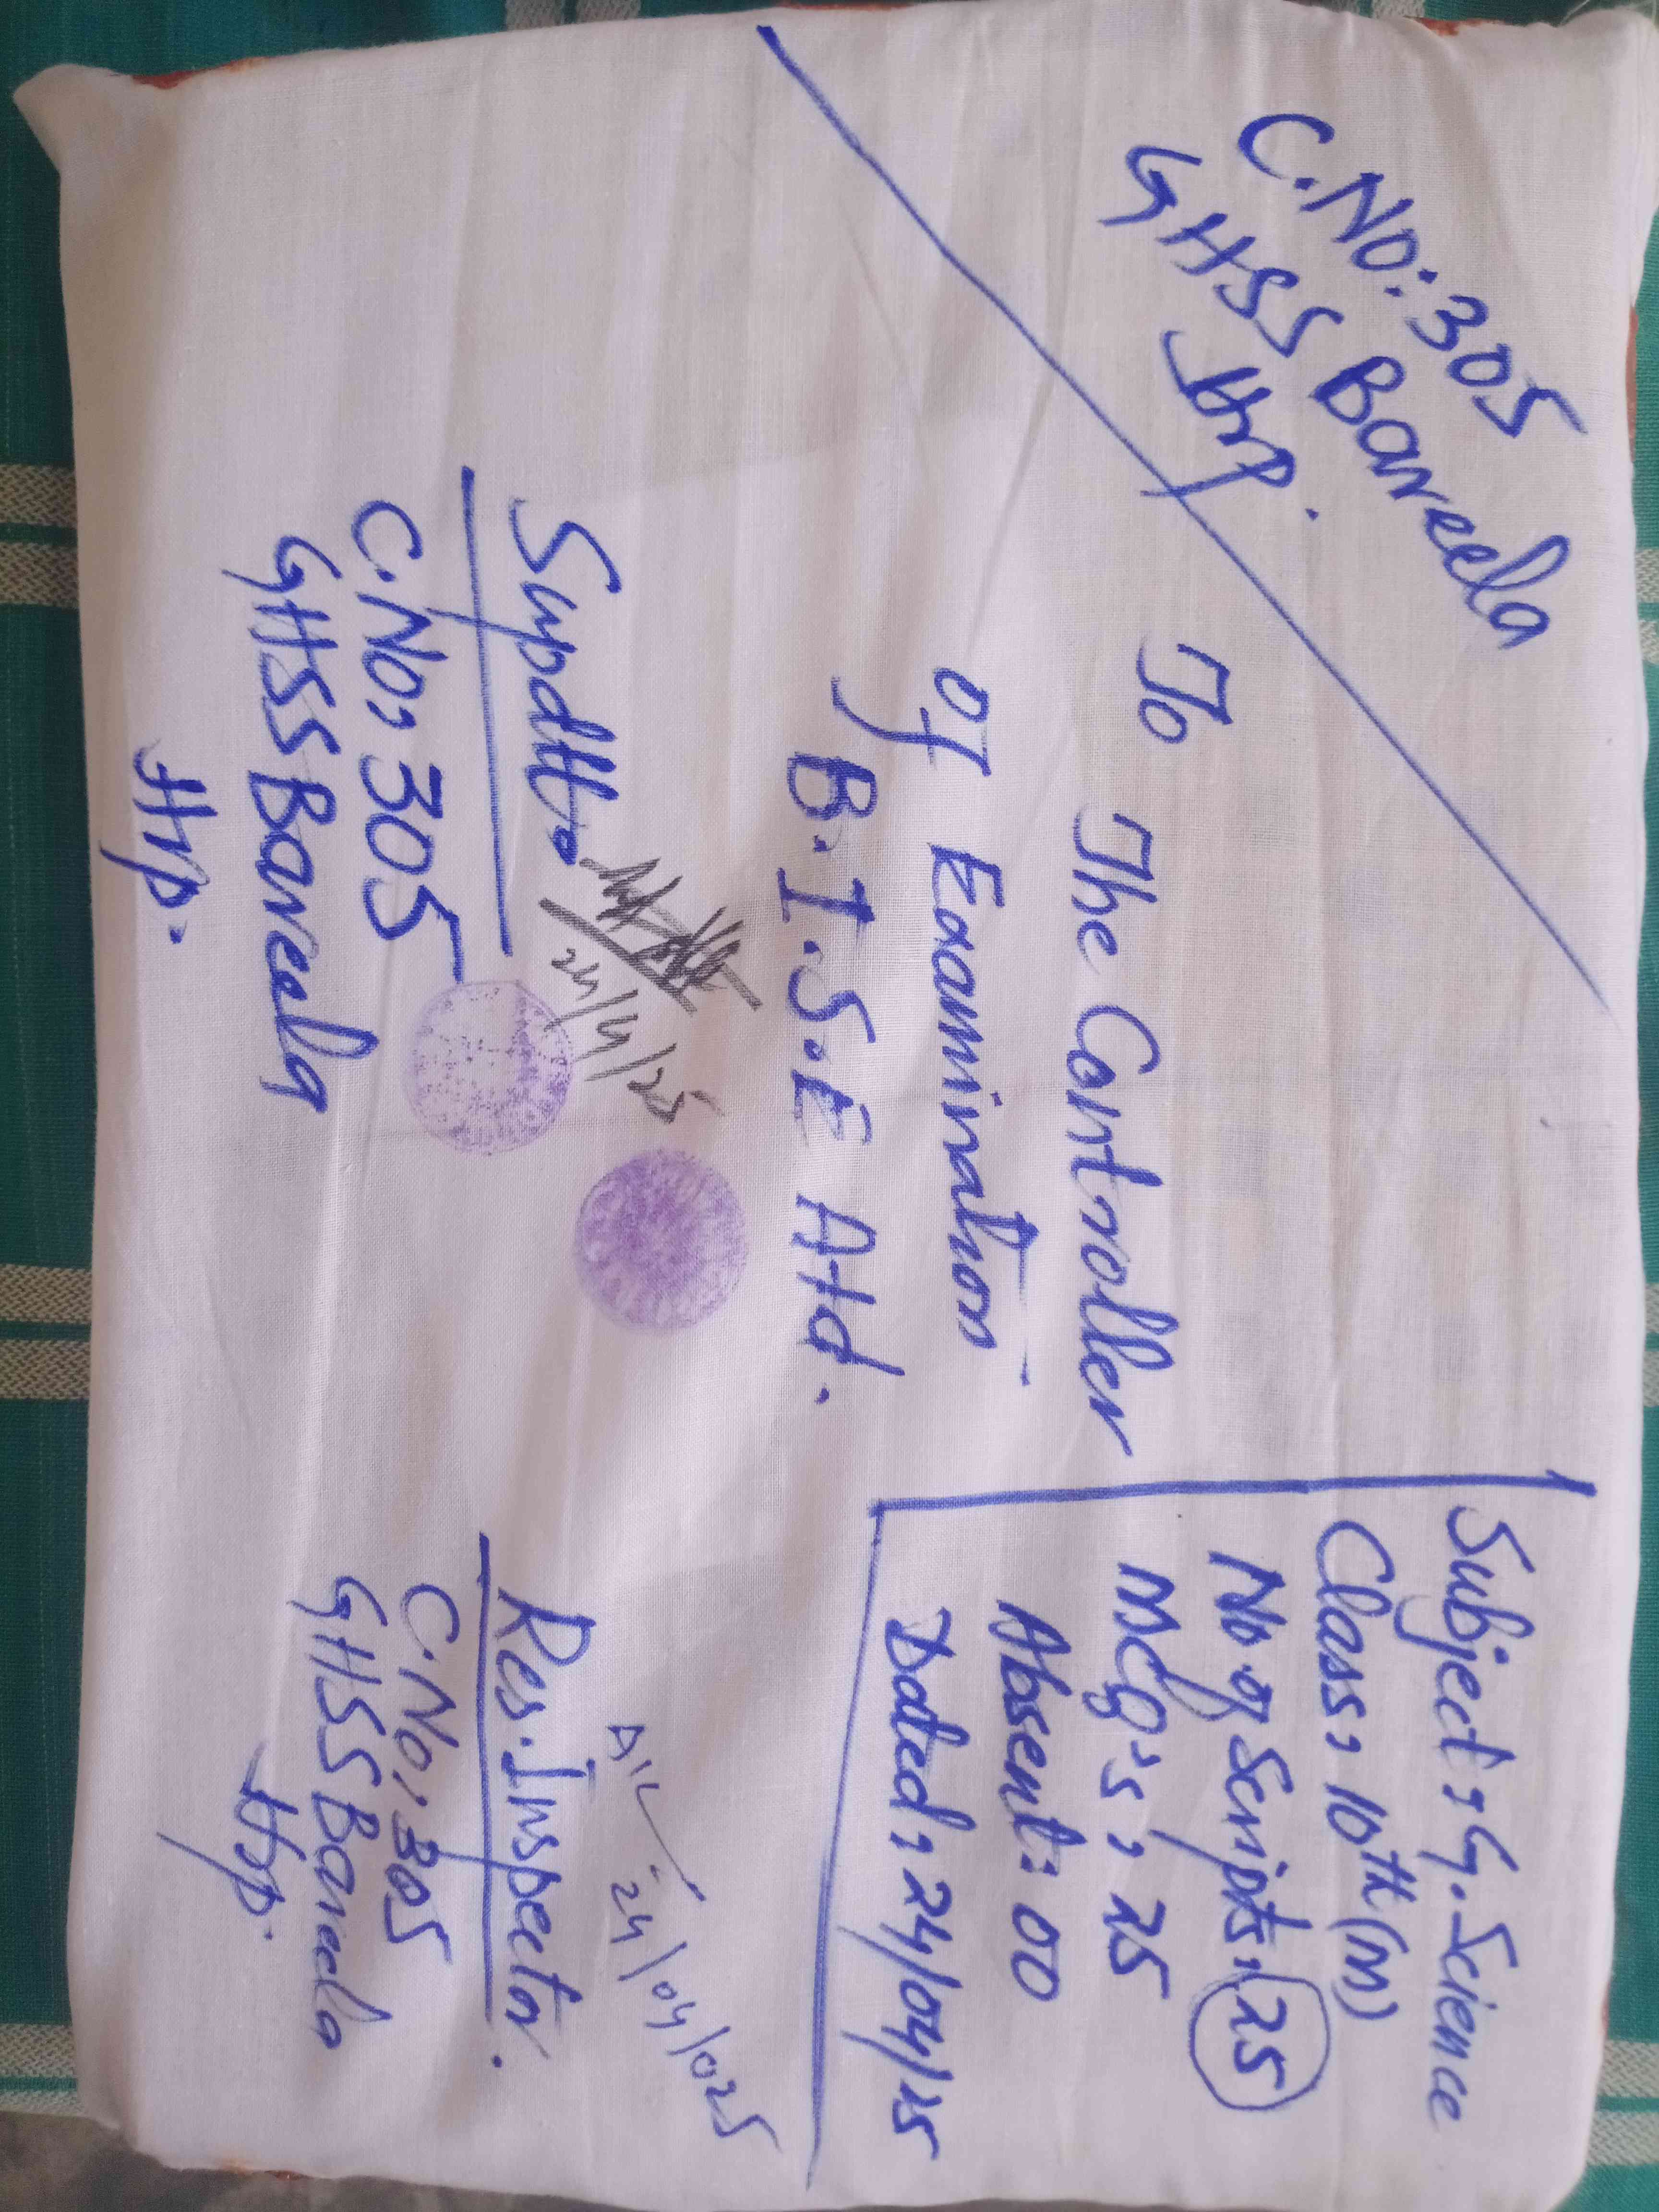 C.No:305
GHSS Bareela
Hrp.
To The Controller
Of Examination
B.I.S.E Atd.
Subject: G.Science
Class: 10th (M)
No of Scripts: 25
MCQ's: 25
Absent: 00
Dated: 24/04/25
Supdtt.
24/4/25
C.No: 305
GHSS Bareela
Hrp.
24/04/025
Res.Inspector.
C.No: 305
GHSS Bareela
Hrp.